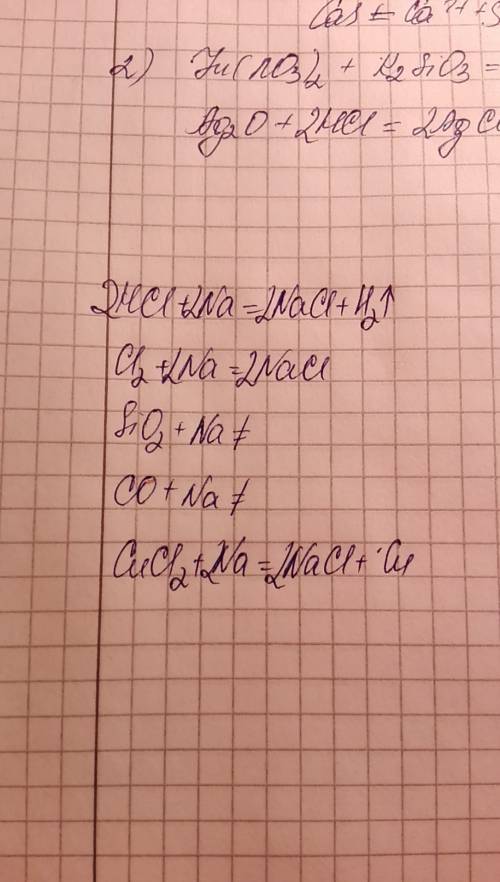 CaS ⇄ Ca²⁺ + S
2) Zn(NO3)2 + K2SiO3 =
Ag2O + 2HCl = 2AgCl
2HCl + 2Na = 2NaCl + H2↑
Cl2 + 2Na = 2NaCl
SiO2 + Na ≠
CO + Na ≠
CuCl2 + 2Na = 2NaCl + Cu